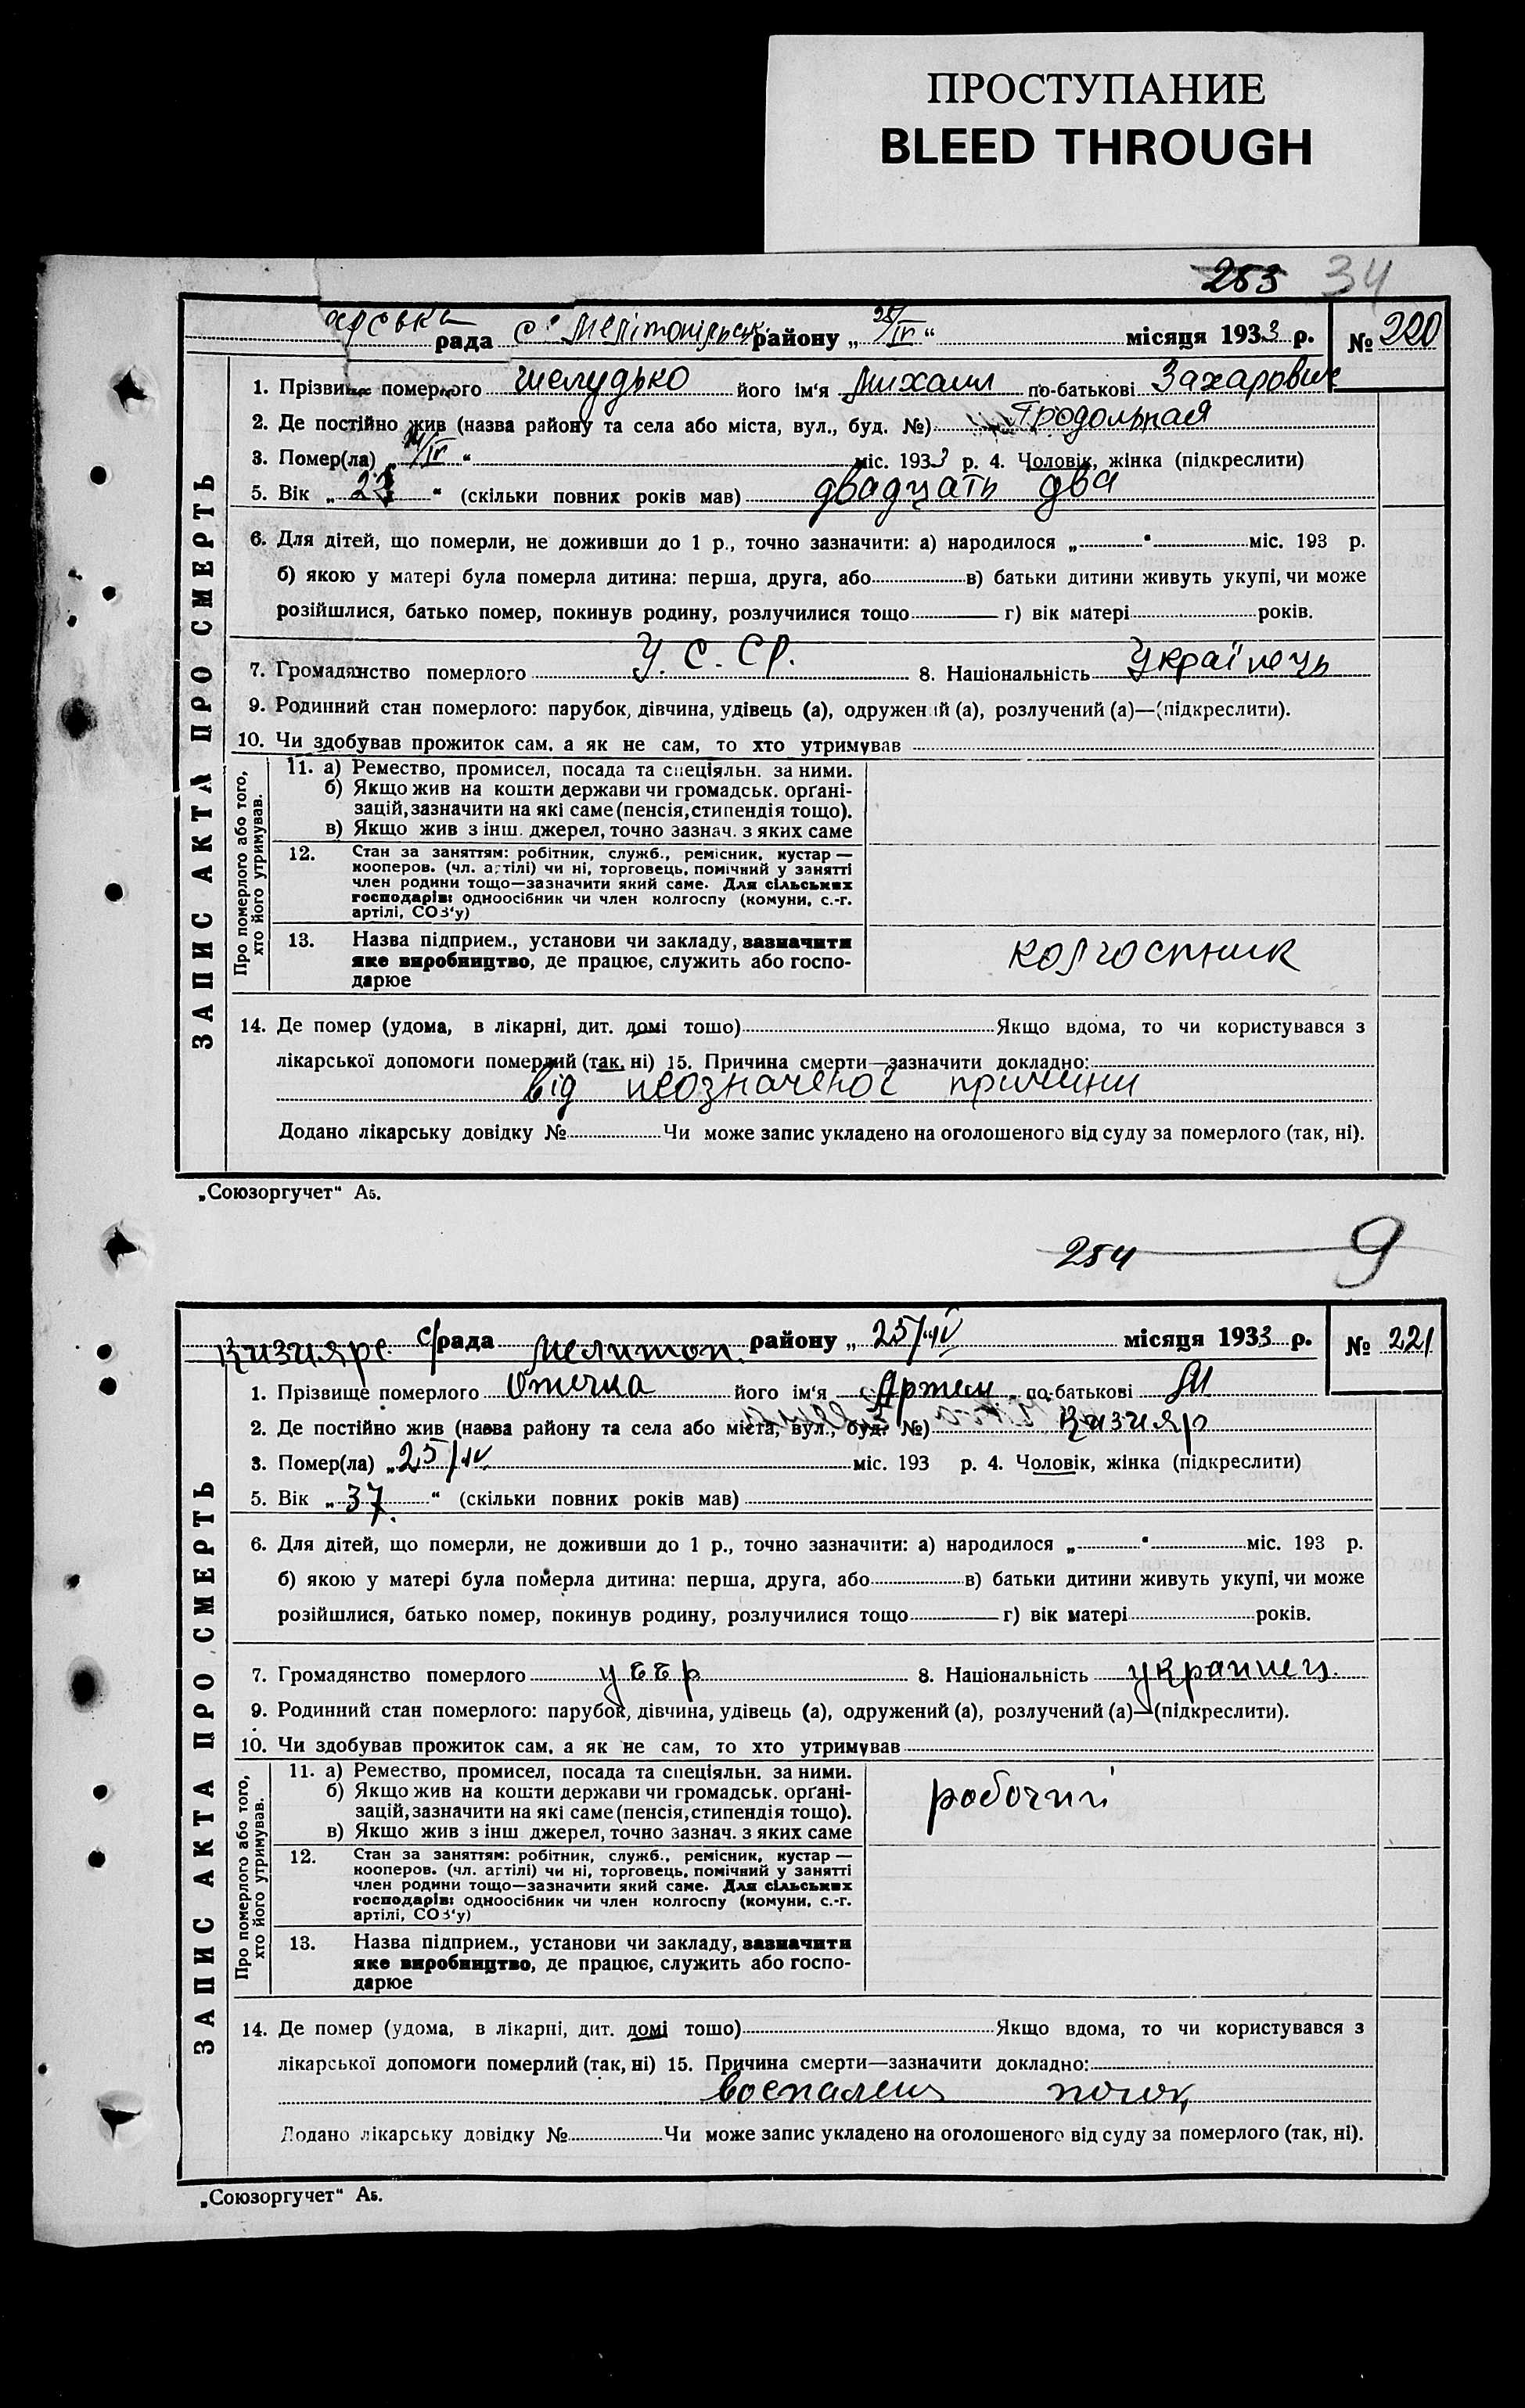 ПРОСТУПАНИЕ
BLEED THROUGH
253 34
рада с. Мелітопільськ. району „25/IV“ місяця 1933 р. № 220
1. Прізвище померлого Шелудько його ім‘я Михаил по-батькові Захарович
2. Де постійно жив (назва району та села або міста, вул., буд. №) Продольная
3. Помер(ла) „ /IV“ міс. 1933 р. 4. Чоловік, жінка (підкреслити)
5. Вік „22“ (скільки повних років мав) двадцать два
6. Для дітей, що померли, не доживши до 1 р., точно зазначити: а) народилося „ “ міс. 193 р.
б) якою у матері була померла дитина: перша, друга, або в) батьки дитини живуть укупі, чи може
розійшлися, батько помер, покинув родину, розлучилися тощо г) вік матері років.
7. Громадянство померлого У. С. СР. 8. Національність Українець
9. Родинний стан померлого: парубок, дівчина, удівець (а), одружений (а), розлучений (а)—(підкреслити).
10. Чи здобував прожиток сам, а як не сам, то хто утримував
ЗАПИС АКТА ПРО СМЕРТЬ
Про померлого або того, хто його утримував.
11. а) Ремество, промисел, посада та спеціяльн. за ними.
б) Якщо жив на кошти держави чи громадськ. орґані-
зацій, зазначити на які саме (пенсія, стипендія тощо).
в) Якщо жив з інш. джерел, точно зазнач. з яких саме
12. Стан за заняттям: робітник, служб., ремісник, кустар —
кооперов. (чл. артілі) чи ні, торговець, помічний у занятті
член родини тощо—зазначити який саме. Для сільських
господарів: одноосібник чи член колгоспу (комуни, с.-г.
артілі, СОЗ‘у)
13. Назва підприєм., установи чи закладу, зазначити
яке виробництво, де працює, служить або госпо-
дарює
колгоспник
14. Де помер (удома, в лікарні, дит. домі тошо) Якщо вдома, то чи користувався з
лікарської допомоги померлий (так, ні) 15. Причина смерти—зазначити докладно:
від неозначеної причини
Додано лікарську довідку № Чи може запис укладено на оголошеного від суду за померлого (так, ні).
„Союзоргучет“ А5.
254 9
Кизияре с/рада Мелитоп. району „25/IV“ місяця 1933 р. № 221
1. Прізвище померлого Отечка його ім‘я Артем по-батькові
2. Де постійно жив (назва району та села або міста, вул., буд. №) Кизияр
3. Помер(ла) „25/IV міс. 193 р. 4. Чоловік, жінка (підкреслити)
5. Вік „37“ (скільки повних років мав)
6. Для дітей, що померли, не доживши до 1 р., точно зазначити: а) народилося „ “ міс. 193 р.
б) якою у матері була померла дитина: перша, друга, або в) батьки дитини живуть укупі, чи може
розійшлися, батько помер, покинув родину, розлучилися тощо г) вік матері років.
7. Громадянство померлого УССР 8. Національність украинец
9. Родинний стан померлого: парубок, дівчина, удівець (а), одружений (а), розлучений (а)—(підкреслити).
10. Чи здобував прожиток сам, а як не сам, то хто утримував
ЗАПИС АКТА ПРО СМЕРТЬ
Про померлого або того, хто його утримував.
11. а) Ремество, промисел, посада та спеціяльн. за ними.
б) Якщо жив на кошти держави чи громадськ. орґані-
зацій, зазначити на які саме (пенсія, стипендія тощо).
в) Якщо жив з інш джерел, точно зазнач. з яких саме
рабочий
12. Стан за заняттям: робітник, служб., ремісник, кустар —
кооперов. (чл. артілі) чи ні, торговець, помічний у занятті
член родини тощо—зазначити який саме. Для сільських
господарів: одноосібник чи член колгоспу (комуни, с.-г.
артілі, СОЗ‘у)
13. Назва підприєм., установи чи закладу, зазначити
яке виробництво, де працює, служить або госпо-
дарює
14. Де помер (удома, в лікарні, дит. домі тошо) Якщо вдома, то чи користувався з
лікарської допомоги померлий (так, ні) 15. Причина смерти—зазначити докладно:
воспаления почек
Додано лікарську довідку № Чи може запис укладено на оголошеного від суду за померлого (так, ні).
„Союзоргучет“ А5.